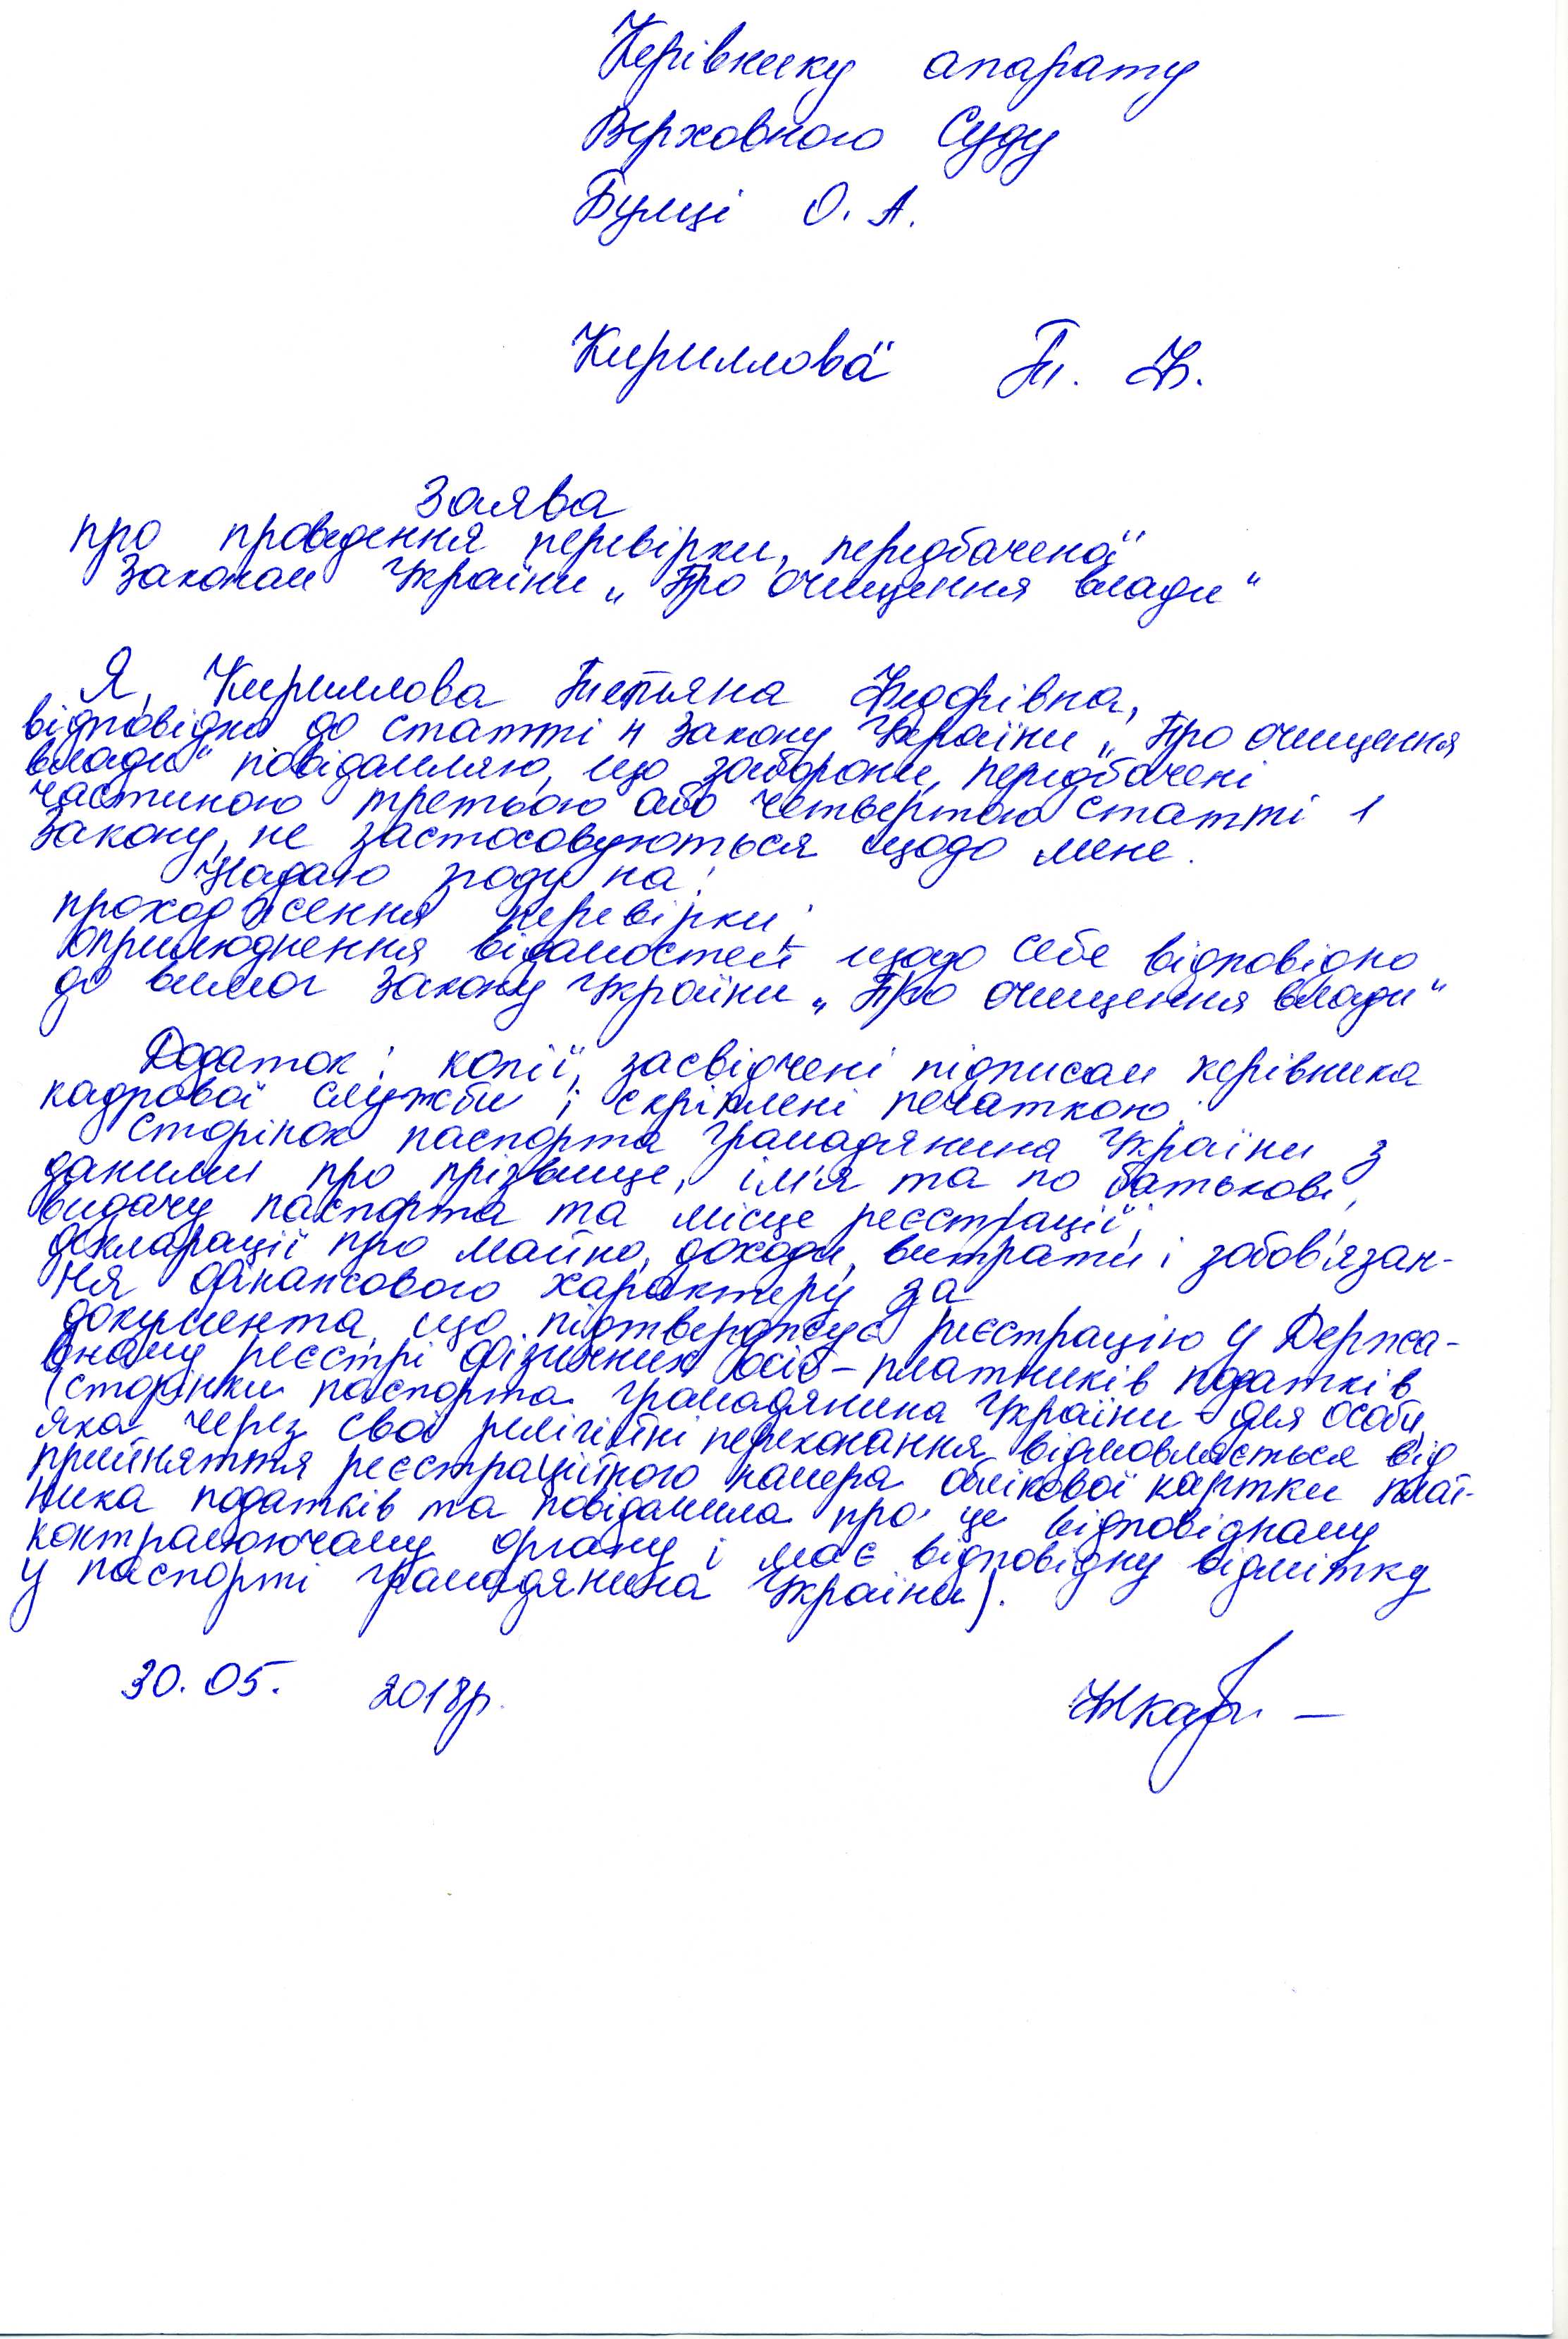 Керівнику апарату
Верховного Суду
Булці О. А.
Кириллової Т. Ф.
Заява
про проведення перевірки, передбаченої
Законом України „Про очищення влади"
Я, Кириллова Тетяна Федорівна,
відповідно до статті 4 Закону України „Про очищення
влади" повідомляю, що заборони, передбачені
частиною третьою або четвертою статті 1
Закону, не застосовуються щодо мене.
Надаю згоду на:
проходження перевірки;
оприлюднення відомостей щодо себе відповідно
до вимог Закону України „Про очищення влади"
Додаток: копії, засвідчені підписом керівника
кадрової служби і скріплені печаткою:
сторінок паспорта громадянина України з
даними про прізвище, ім'я та по батькові,
видачу паспорта та місце реєстрації;
декларації про майно, доходи, витрати і зобов'язан-
ня фінансового характеру за
документа, що підтверджує реєстрацію у Держа-
вному реєстрі фізичних осіб – платників податків
(сторінки паспорта громадянина України – для особи,
яка через свої релігійні переконання відмовляється від
прийняття реєстраційного номера облікової картки плат-
ника податків та повідомила про це відповідному
контролюючому органу і має відповідну відмітку
у паспорті громадянина України).
30.05. 2018р.